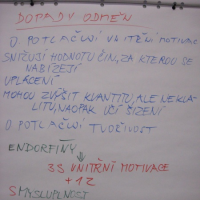 DOPADY ODMĚN
O POTLAČUJÍ VNITŘNÍ MOTIVACI
SNIŽUJÍ HODNOTU ČINU, ZA KTEROU SE
NABÍZEJÍ
UPLÁCENÍ
MOHOU ZVÝŠIT KVANTITU, ALE NE KVALITU, NAOPAK UČÍ ŠIZENÍ
O POTLAČUJÍ TVOŘIVOST
ENDORFINY
3S VNITŘNÍ MOTIVACE
+ 1Z
SMYSLUPLNOST